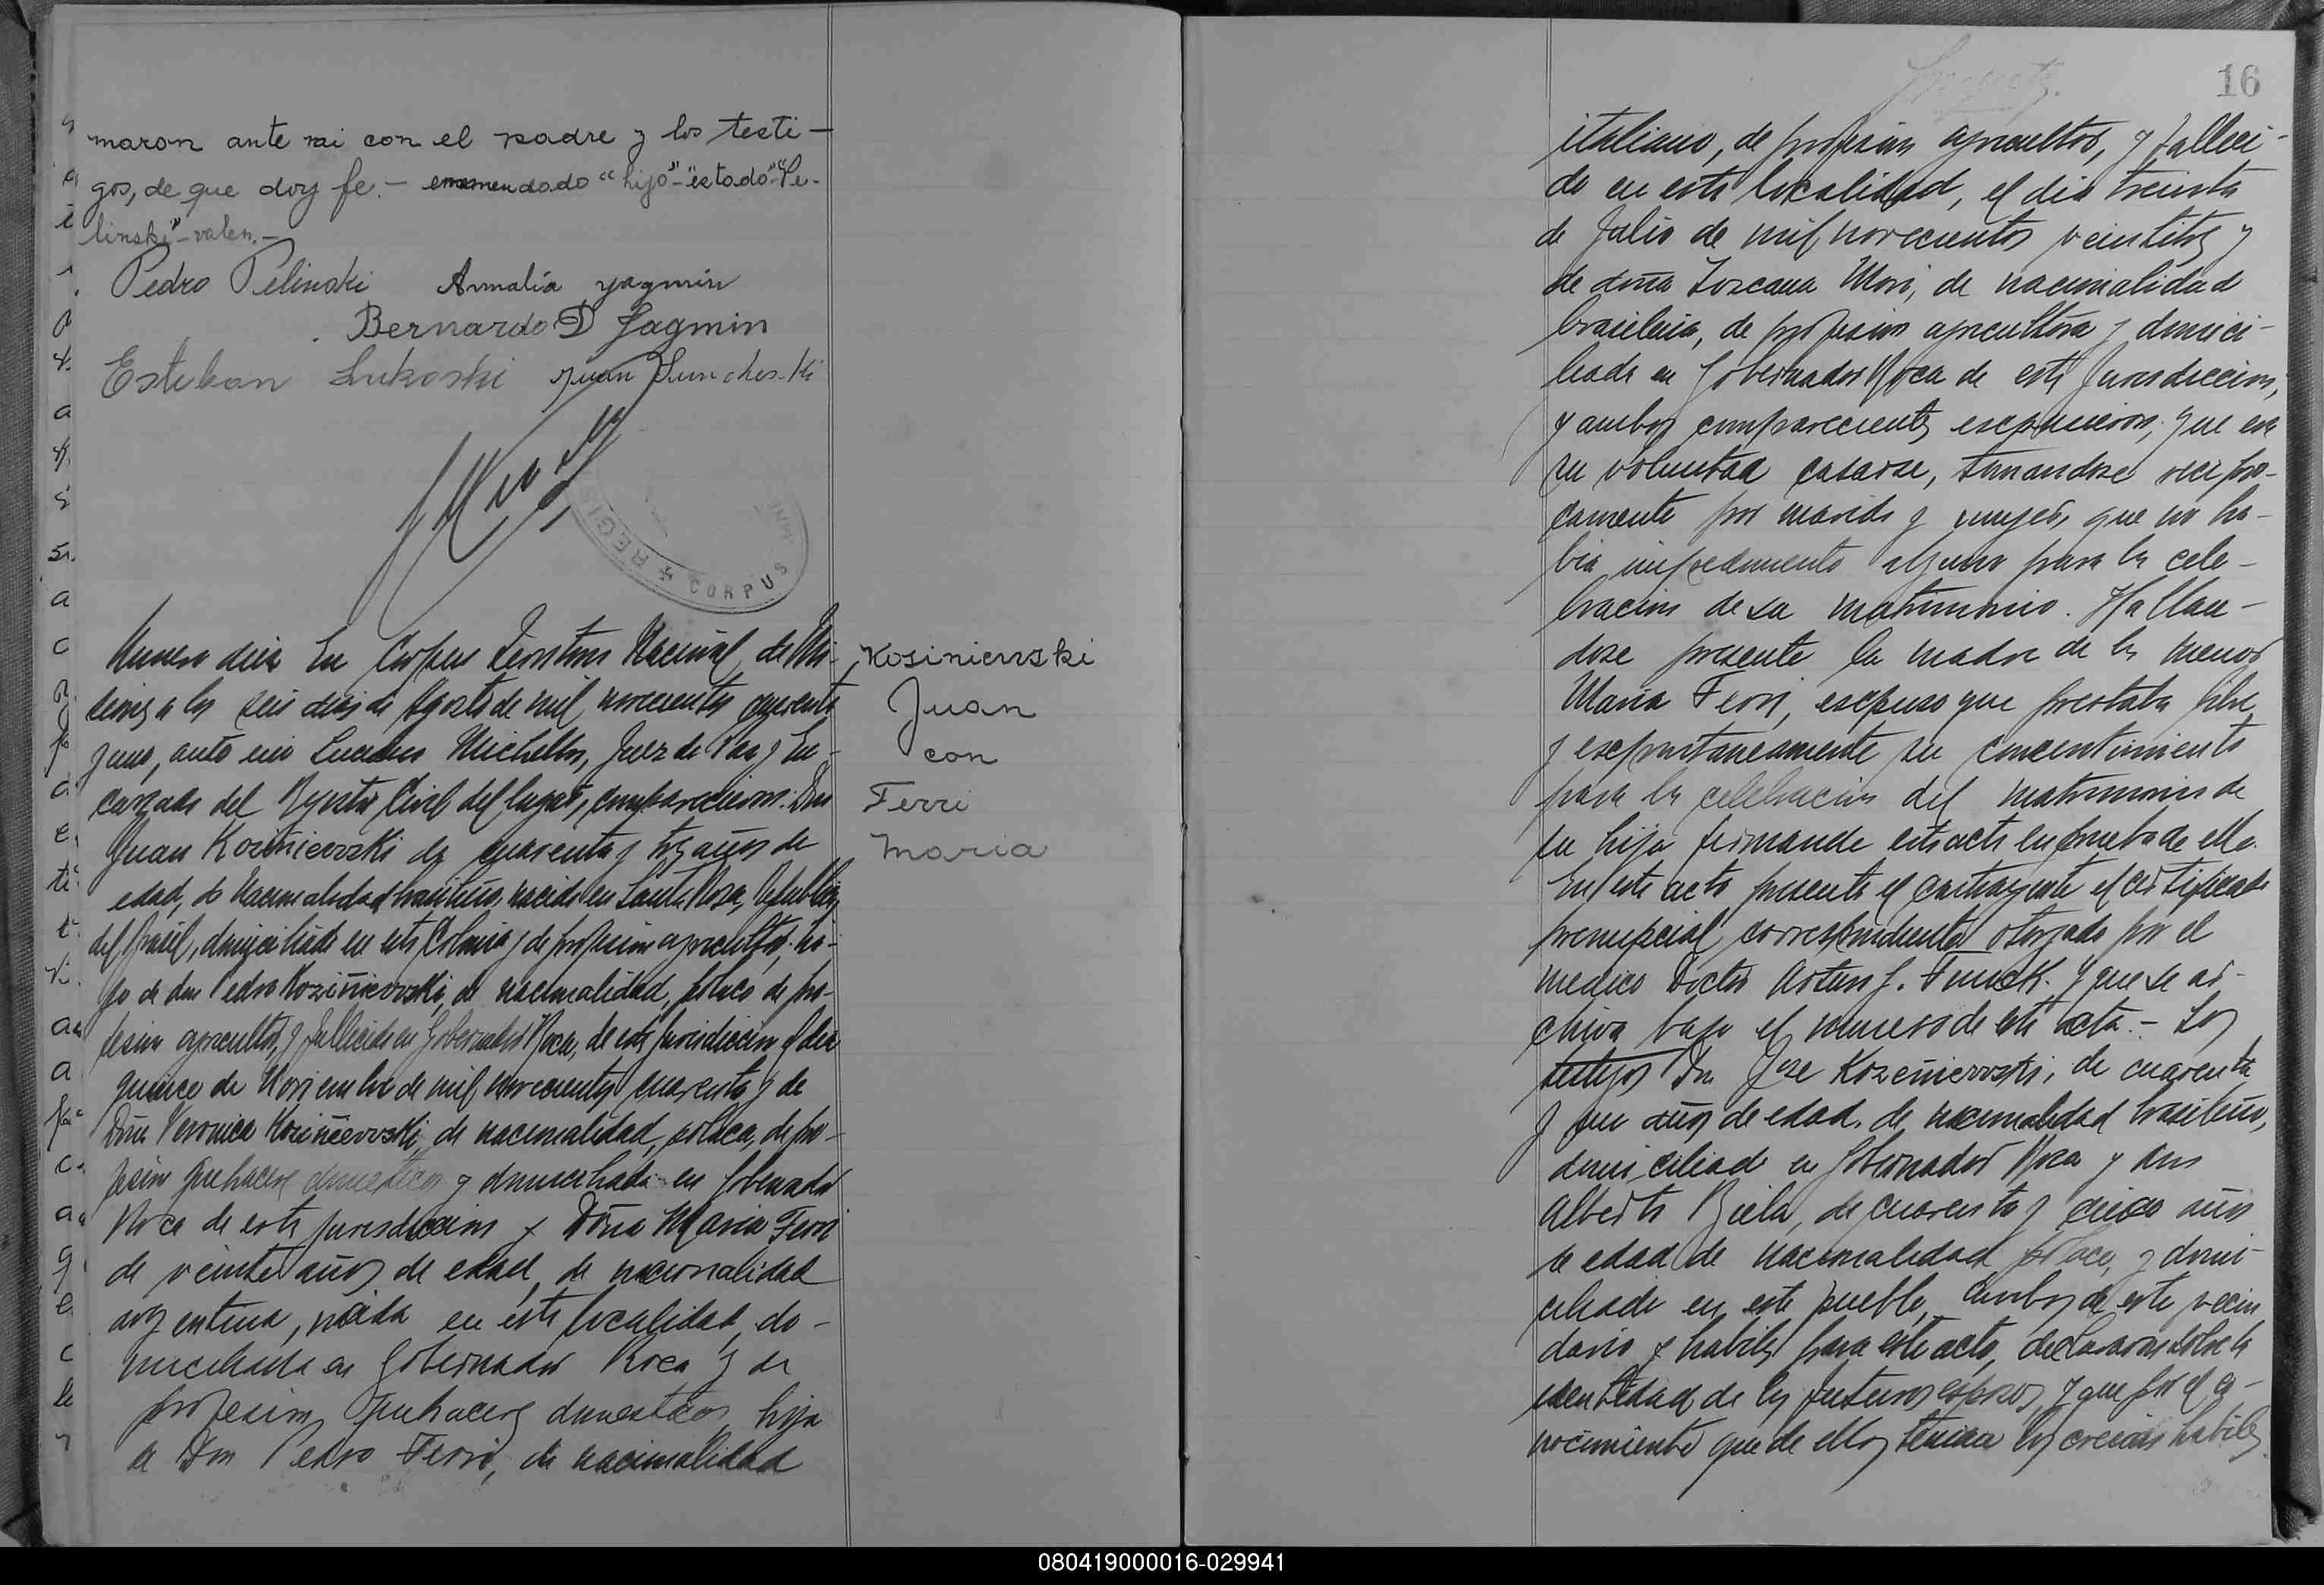 maron ante mi con el padre y los testi-
gos, de que doy fe.- enmendado "hijo"-"estado"-"Pe-
linski"-valen.-
Pedro Pelinski Annalia yagmin
Bernardo D Jagmin
Esteban Lukoski Juan
REGIS
CORPUS
Numero diez En Corpus Territorio Nacional de Mi-
siones a los seis dias de Agosto de mil novecientos cuarenta
y uno, ante mi Michellon, Juez de Paz y En-
cargado del Registro Civil del lugar, comparecieron: Don
Juan Koziñievoski de cuarenta y tres años de
edad, de Nacionalidad brasileño, nacido en Santa Rosa, Republica
del Brasil, domiciliado en esta Colonia y de profesion agricultor, hi-
jo de don Pedro Koziñievoski, de nacionalidad, polaco de pro-
fesion agricultor, y fallecido en Gobernador Roca, de esta jurisdiccion el dia
quince de Noviembre de mil novecientos cuarenta y de
Doña Veronica Koziñievoski, de nacionalidad, polaca, de pro-
fesion quehaceres domesticos y domiciliada en Gobernador
Roca de esta jurisdiccion y Doña Maria Ferri
de veinte años de edad, de nacionalidad
argentina, nacida en esta localidad, do-
miciliada en Gobernador Roca y de
profesion quehaceres domesticos, hija
de Don Pedro Ferri, de nacionalidad
Kosinienski
Juan
con
Ferri
Maria
16
italiano, de profesion agricultor, y falleci-
do en esta localidad, el dia treinta
de Julio de mil novecientos y
de doña Toscana Mori, de nacionalidad
brasileña, de profesion agricultora y domici-
liada en Gobernador Roca de esta Jurisdiccion,
y ambos comparecientes expusieron; que era
su voluntad casarse, tomandose recipro-
camente por marido y mujer, que no ha-
bia impedimento alguno para la cele-
bracion de su matrimonio. Hallan-
dose presente la madre de la menor
Maria Ferri, expuso que prestaba libre
y espontaneamente su concentimiento
para la celebracion del matrimonio de
su hija firmando esta acta en prueba de ello.
En este acto presenta el contrayente el certificado
prenupcial correspondiente otorgado por el
medico Doctor Arturo J. Funck. y que se ar-
chiva bajo el numero de esta acta.- Los
testigos Don Jose Kozeñievoski, de cuarenta
y un años de edad, de nacionalidad brasileño,
domiciliado en Gobernador Roca y don
Alberto Biela, de cuarenta y cinco años
de edad de nacionalidad polaco, y domi-
ciliado en este pueblo, ambos de este vecin
dario y habiles para este acto, declararon sobre la
identidad de los futuros esposos, y que por el co-
nocimiento que de ellos tenian los creian habiles
080419000016-029941